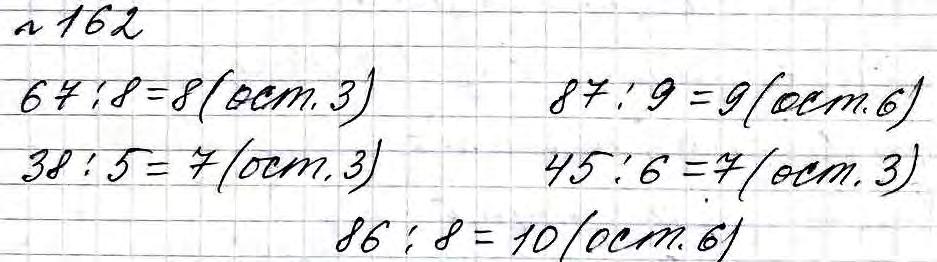 №162
67:8=8(ост.3) 87:9=9(ост.6)
38:5=7(ост.3) 45:6=7(ост.3)
86:8=10(ост.6)